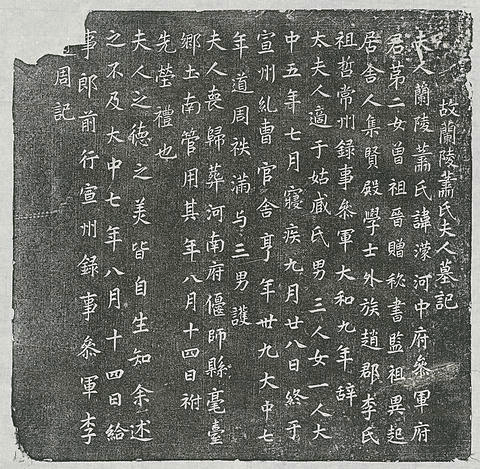 故蘭陵蕭氏夫人墓記
夫人蘭陵蕭氏諱濛河中府叅軍府
君苐二女曾祖晉贈秘書監祖異起
居舍人集賢殿學士外族趙郡李氏
祖哲常州録事叅軍大和九年辞
太夫人適于姑臧氏男三人女一人大
中五年七月寢疾九月廿八日終于
宣州糺曺官舍享年卅九大中七
年道周秩滿与三男護
夫人喪歸葬河南府偃師縣亳臺
鄉土南管用其年八月十四日祔
先塋禮也
夫人之德之美皆自生知余述
之不及大中七年八月十四日給
事郎前行宣州録事叅軍李
周記